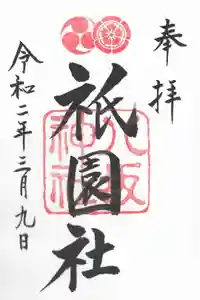 奉拝
祇園社
八坂神社
令和二年三月九日